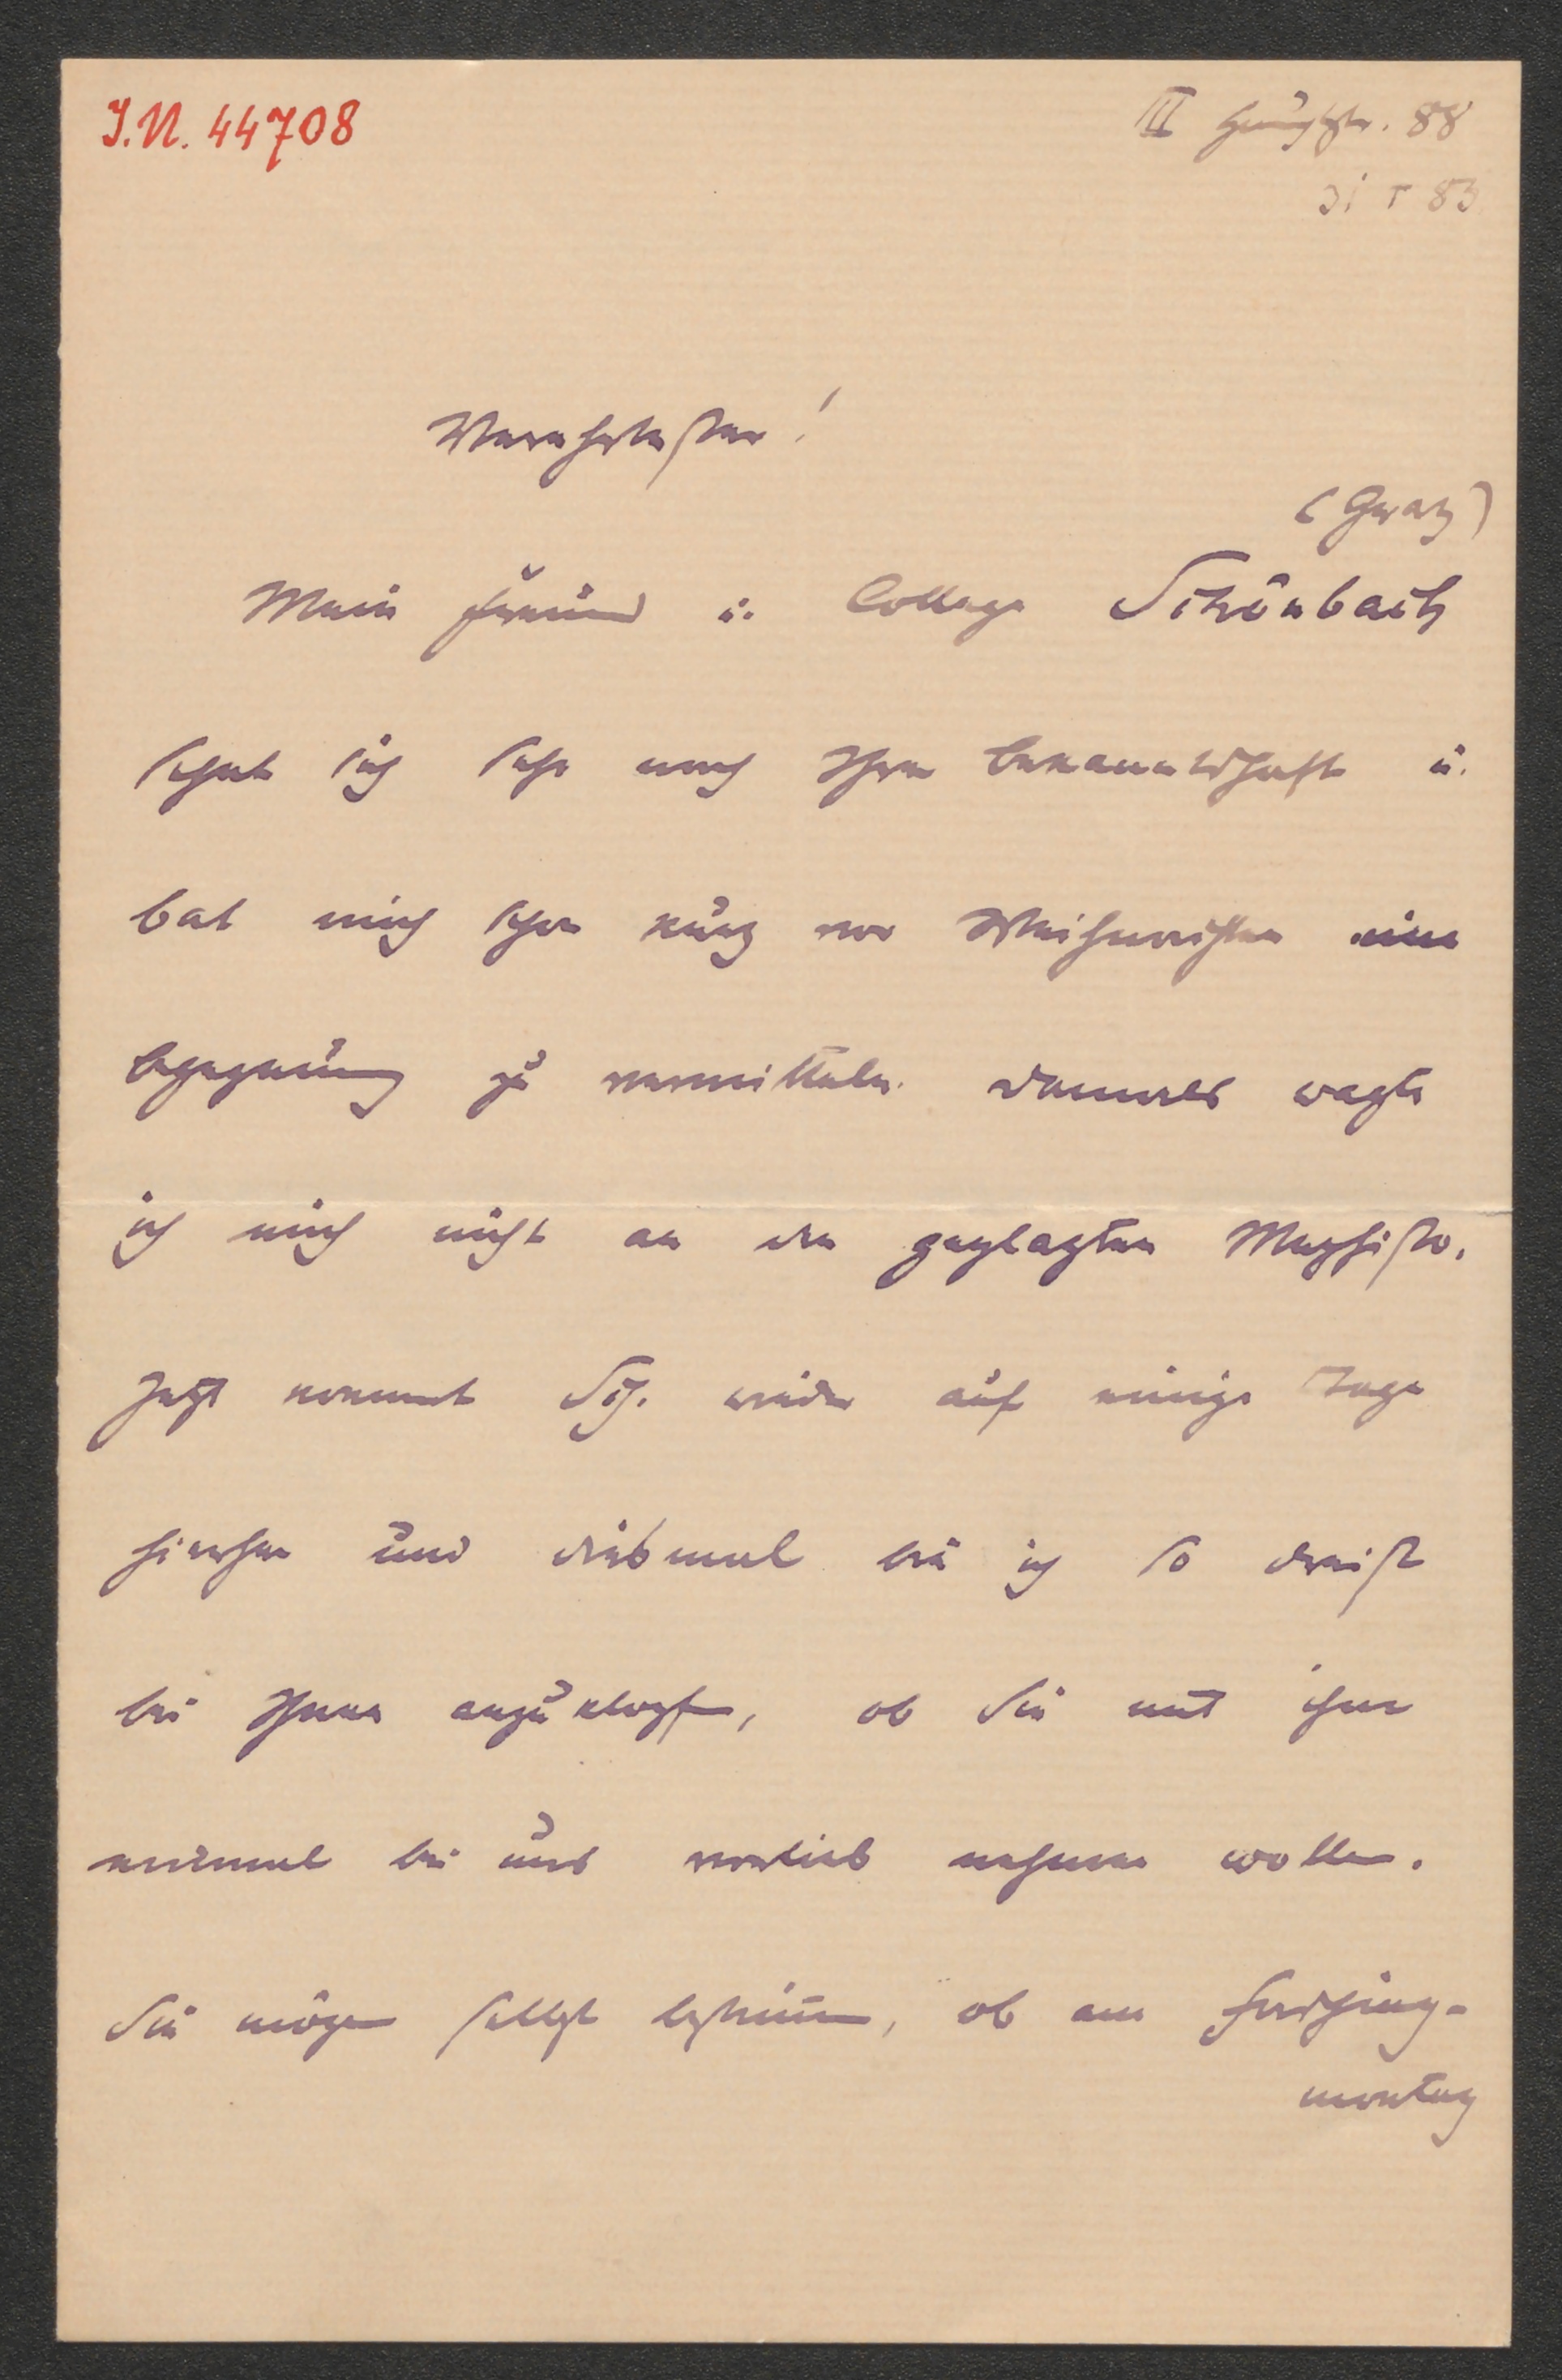 I.N. 44708
III Hauptstr. 88
31 I 83
Verehrtester!
(Graz)
Mein Freund u. College Schönbach
sehnt sich sehr nach Ihrer Bekanntschaft u.
bat mich schon kurz vor Weihnachten eine
Begegnung zu vermitteln. Damals wagte
ich mich nicht an den geplagten Mephisto.
Jetzt kommt Sch. wieder auf einige Tage
hierher und diesmal bin ich so dreist
bei Ihnen anzuklopfen, ob Sie mit ihm
einmal bei uns vorlieb nehmen wollen.
Sie mögen selbst bestimmen, ob am Fasching-
montag